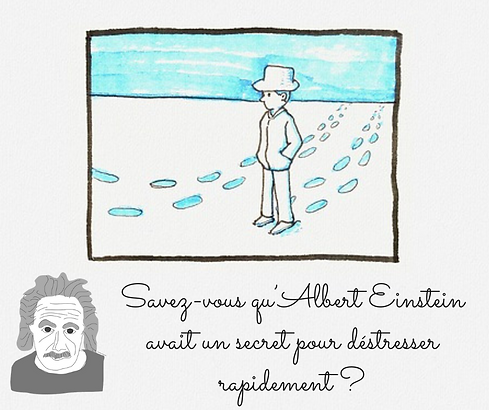 Savez-vous qu'Albert Einstein
avait un secret pour déstresser
rapidement ?